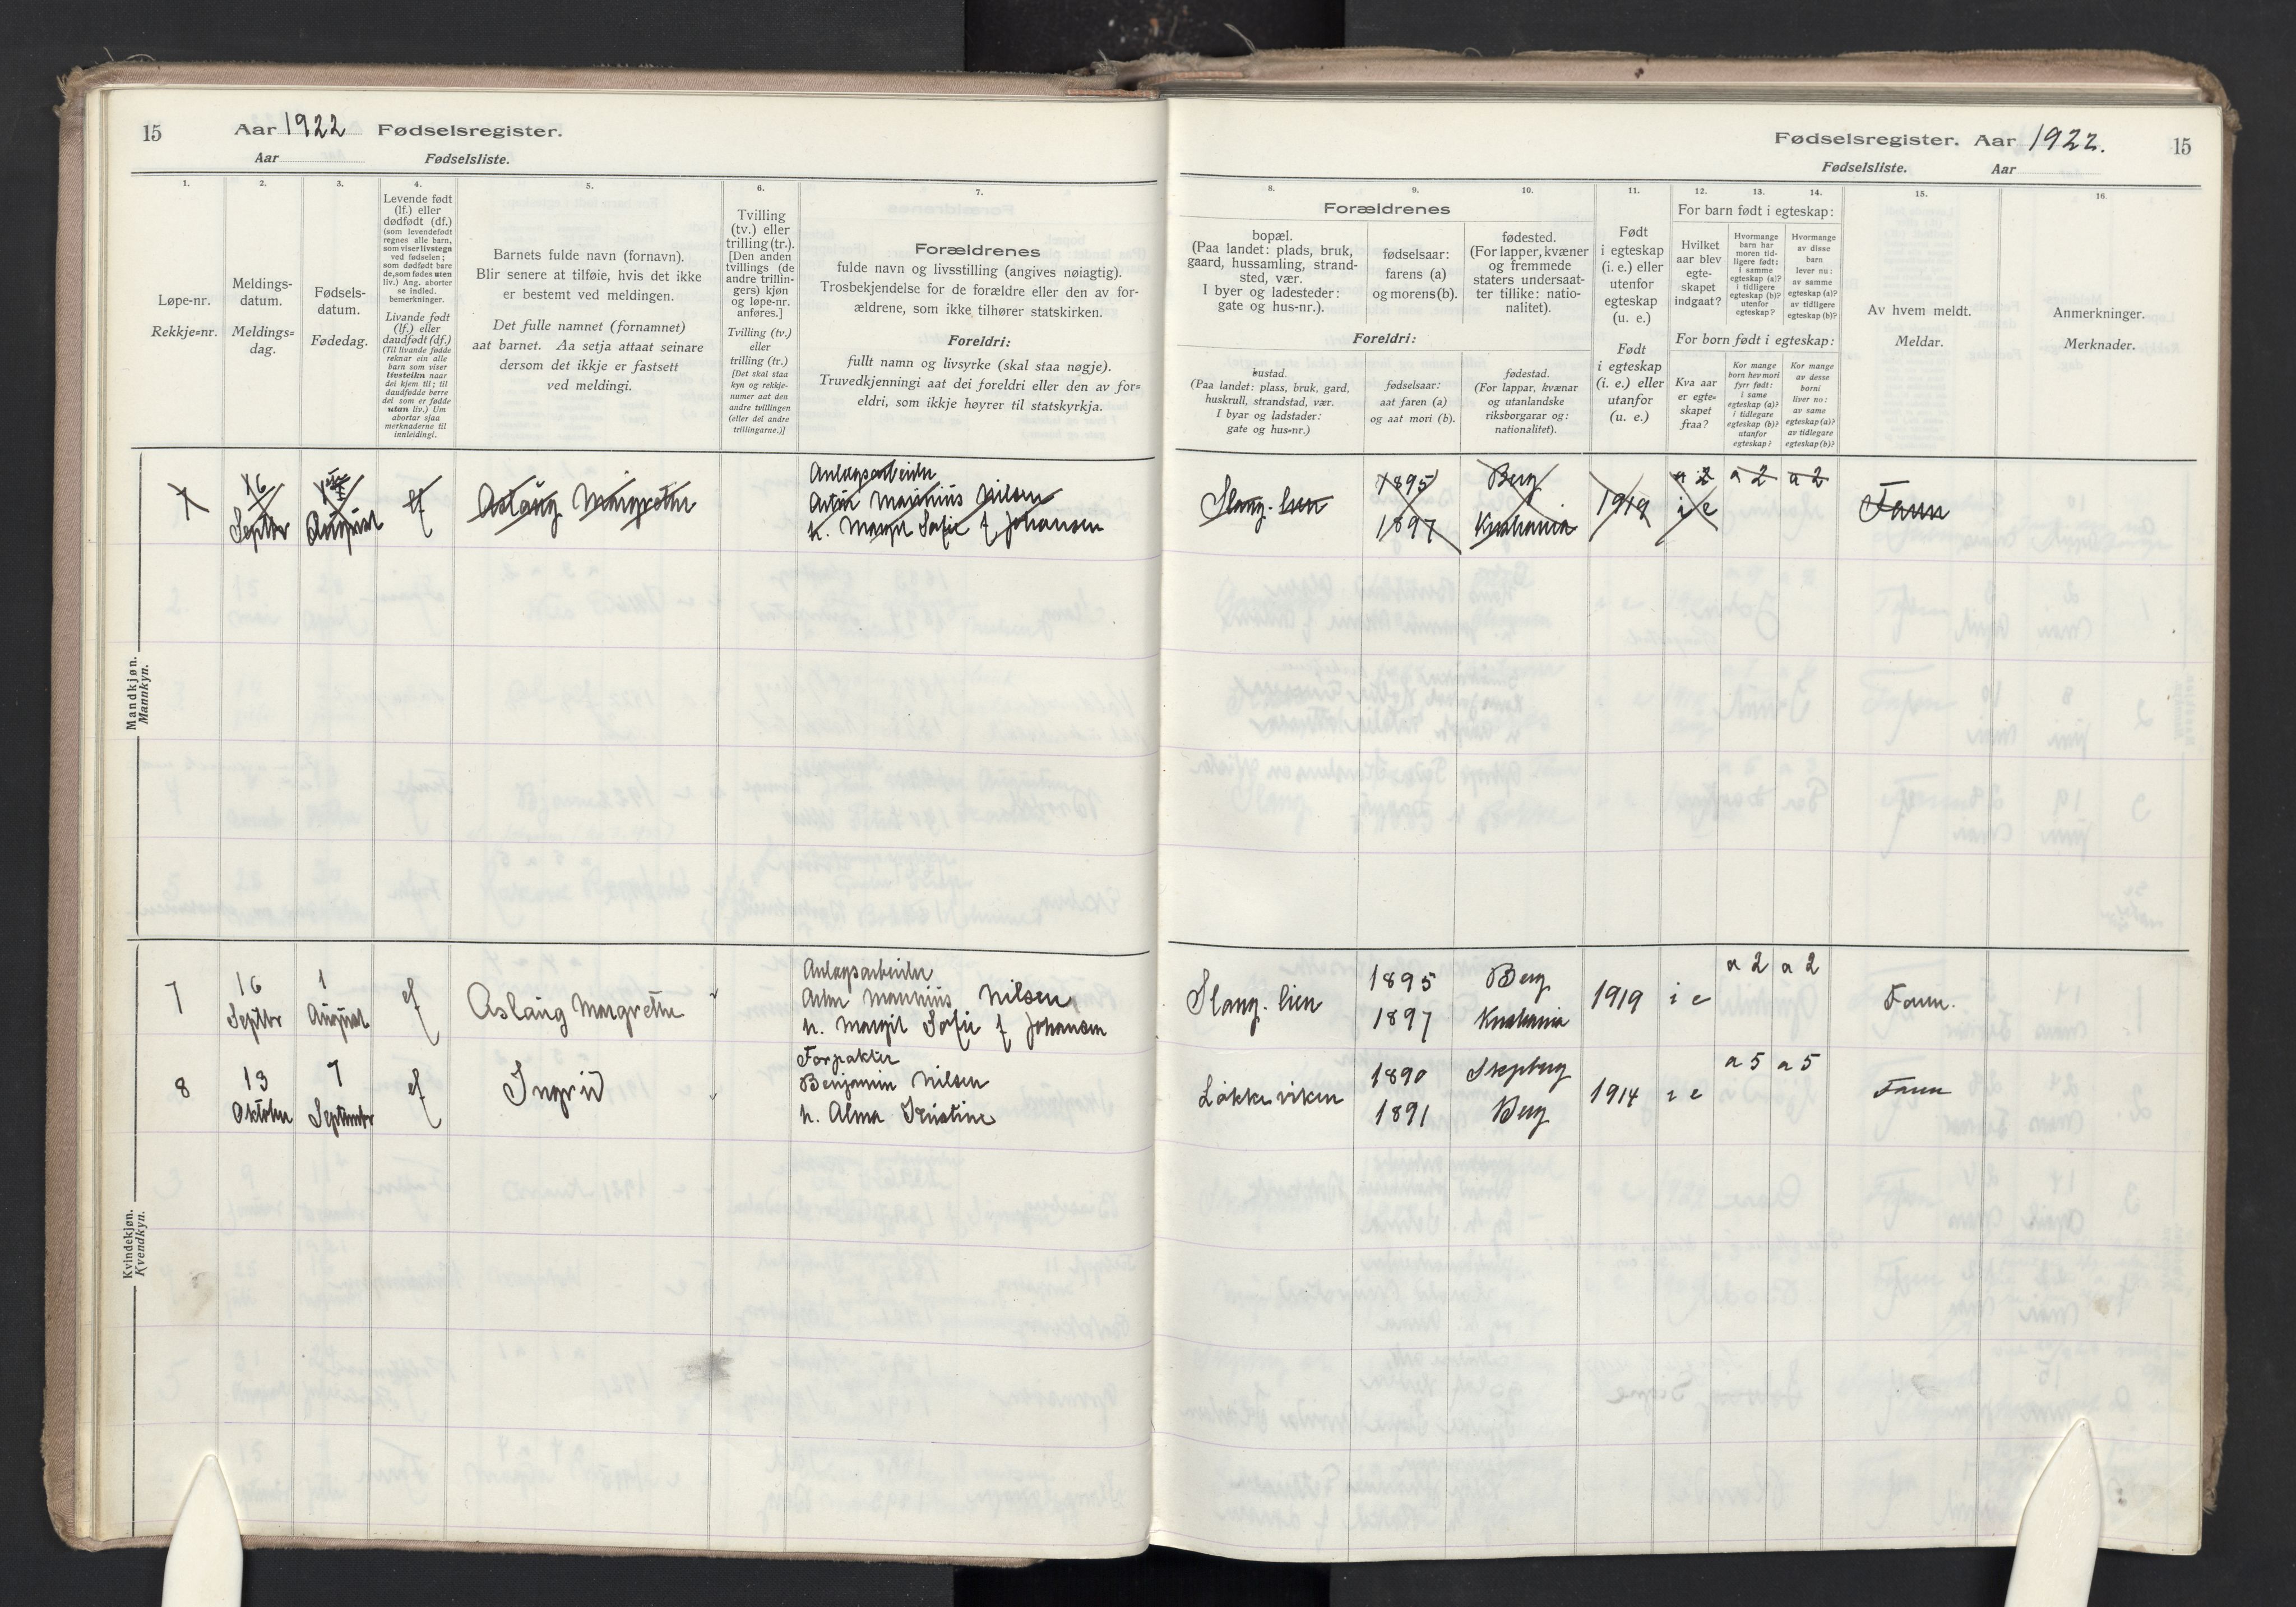 15 Aar 1922 Fødselsregister.
Aar Fødselsliste.
1. 2. 3. 4. 5. 6. 7.
Løpe-nr.
Rekkje=nr.
Meldings-
datum.
Meldings=
dag.
Fødsels-
datum.
Fødedag.
Levende født
(lf.) eller
dødfødt (df.)
(som levendefødt
regnes alle barn,
som viser livstegn
ved fødselen;
som dødfødt bare
de, som fødes uten
liv.) Ang. aborter
se indled.
bemerkninger.
Livande født
(lf.) eller
daudfødt (df.)
(Til livande fødde
reknar ein alle
barn som viser
livsteikn naar
dei kjem til; til
daudfødde berre
dei som er fødde
utan liv.) Um
abortar sjaa
merknaderne til
innleidingi.
Barnets fulde navn (fornavn).
Blir senere at tilføie, hvis det ikke
er bestemt ved meldingen.
Det fulle namnet (fornamnet)
aat barnet. Aa setja attaat seinare
dersom det ikkje er fastsett
ved meldingi.
Tvilling
(tv.) eller
trilling (tr.).
[Den anden
tvillings (de
andre trillin-
gers) kjøn
og løpe-nr.
anføres.]
Tvilling (tv.)
eller
trilling (tr.)
[Det skal staa
kyn og rekkje-
numer aat den
andre tvillingen
(eller dei andre
trillingarne.)]
Forældrenes
fulde navn og livsstilling (angives nøiagtig).
Trosbekjendelse for de forældre eller den av for-
ældrene, som ikke tilhører statskirken.
Foreldri:
fullt namn og livsyrke (skal staa nøgje).
Truvedkjenningi aat dei foreldri eller den av for=
eldri, som ikkje høyrer til statskyrkja.
Mandkjøn.
Mannkyn.
7 16 Septbr August lf Aslaug Margrethe
Anlægsarbeider
Artur Marinius Nilsen
h. Margit Sofie f Johansen
Kvindekjøn.
Kvendkyn.
7 16 Septbr 1 August lf Aslaug Margrethe
Anlægsarbeider
Artur Marinius Nilsen
h. Margit Sofie f Johansen
8 13 Oktober 7 September lf Ingrid
Forpakter
Benjamin Nilsen
h. Alma Kristine
Fødselsregister. Aar 1922. 15
Fødselsliste. Aar
8. 9. 10. 11. 12. 13. 14. 15. 16.
Forældrenes
bopæl.
(Paa landet: plads, bruk,
gaard, hussamling, strand-
sted, vær.
I byer og ladesteder:
gate og hus-nr.).
fødselsaar:
farens (a)
og morens (b).
fødested.
(For lapper, kvæner
og fremmede
staters undersaat-
ter tillike: natio-
nalitet).
Foreldri:
bustad.
(Paa landet: plass, bruk, gard,
huskrull, strandstad, vær.
I byar og ladstader:
gate og hus=nr.)
fødselsaar:
aat faren (a)
og aat mori (b).
fødestad.
(For lappar, kvænar
og utanlandske
riksborgarar og:
nationalitet).
Født
i egteskap
(i. e.) eller
utenfor
egteskap
(u. e.)
Født
i egteskap
(i. e.) eller
utanfor
(u. e.)
For barn født i egteskap:
Hvilket
aar blev
egte-
skapet
indgaat?
Hvormange
barn har
moren tid-
ligere født:
i samme
egteskap (a)?
i tidligere
egteskap (b)?
utenfor
egteskap?
Hvormange
av disse
barn
lever nu:
av samme
egteskap (a)?
av tidligere
egteskap (b)?
For born født i egteskap:
Kva aar
er egte=
skapet
fraa?
Kor mange
born hev mori
fyrr født:
i same
egteskap (a)?
i tidlegare
egteskap (b)?
utanfor
egteskap?
Kor mange
av desse
borni
liver no:
av same
egteskap (a)?
av tidlegare
egteskap (b)?
Av hvem meldt.
Meldar.
Anmerkninger.
Merknader.
Slang. lien 1895 1897 Berg Kristiania 1919 i e a 2 a 2 a 2 Faren
Slang. lien 1895 1897 Berg Kristiania 1919 i e a 2 a 2 Faren.
Løkkeviken 1890 1891 Skjeberg Berg 1914 i e a 5 a 5 Faren